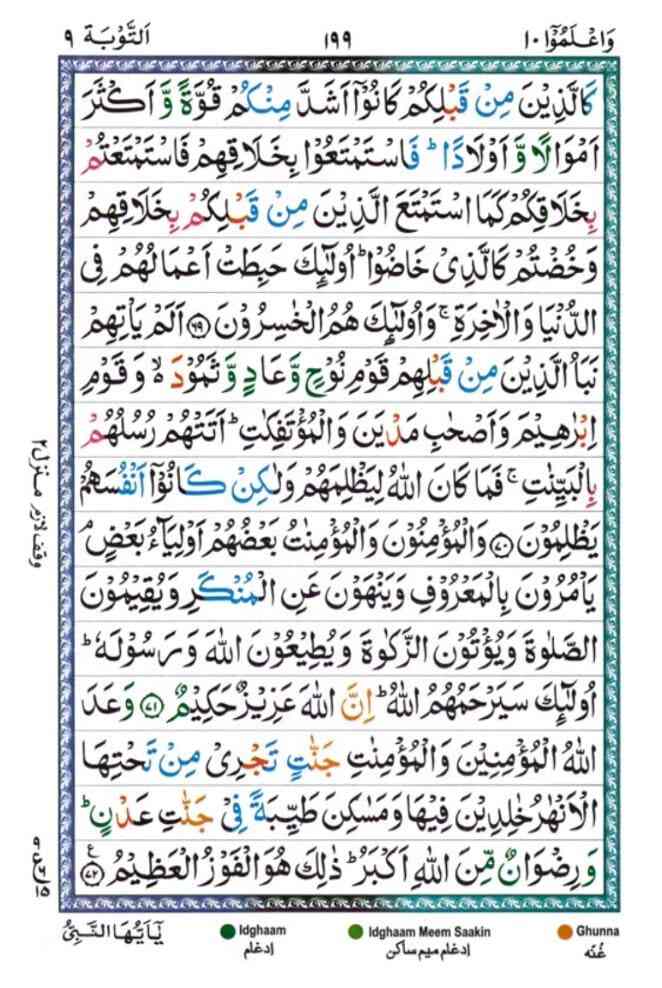 وَاعْلَمُوْۤا ١٠ ١٩٩ اَلتَّوْبَة ٩
كَالَّذِيْنَ مِنْ قَبْلِكُمْ كَانُوْۤا اَشَدَّ مِنْكُمْ قُوَّةً وَّ اَكْثَرَ
اَمْوَالًا وَّ اَوْلَادًا ؕ فَاسْتَمْتَعُوْا بِخَلَاقِهِمْ فَاسْتَمْتَعْتُمْ
بِخَلَاقِكُمْ كَمَا اسْتَمْتَعَ الَّذِيْنَ مِنْ قَبْلِكُمْ بِخَلَاقِهِمْ
وَخُضْتُمْ كَالَّذِیْ خَاضُوْا ؕ اُولٰٓئِكَ حَبِطَتْ اَعْمَالُهُمْ فِی
الدُّنْيَا وَالْاٰخِرَةِ ۚ وَاُولٰٓئِكَ هُمُ الْخٰسِرُوْنَ ۝٦٩ اَلَمْ يَاْتِهِمْ
نَبَاُ الَّذِيْنَ مِنْ قَبْلِهِمْ قَوْمِ نُوْحٍ وَّعَادٍ وَّ ثَمُوْدَ ۙ۬ وَ قَوْمِ
اِبْرٰهِيْمَ وَاَصْحٰبِ مَدْيَنَ وَالْمُؤْتَفِكٰتِ ؕ اَتَتْهُمْ رُسُلُهُمْ
بِالْبَيِّنٰتِ ۚ فَمَا كَانَ اللّٰهُ لِيَظْلِمَهُمْ وَلٰكِنْ كَانُوْۤا اَنْفُسَهُمْ
يَظْلِمُوْنَ ۝٧٠ وَالْمُؤْمِنُوْنَ وَالْمُؤْمِنٰتُ بَعْضُهُمْ اَوْلِيَآءُ بَعْضٍ ۘ
يَاْمُرُوْنَ بِالْمَعْرُوْفِ وَيَنْهَوْنَ عَنِ الْمُنْكَرِ وَيُقِيْمُوْنَ
الصَّلٰوةَ وَيُؤْتُوْنَ الزَّكٰوةَ وَيُطِيْعُوْنَ اللّٰهَ وَرَسُوْلَهٗ ؕ
اُولٰٓئِكَ سَيَرْحَمُهُمُ اللّٰهُ ؕ اِنَّ اللّٰهَ عَزِيْزٌ حَكِيْمٌ ۝٧١ وَعَدَ
اللّٰهُ الْمُؤْمِنِيْنَ وَالْمُؤْمِنٰتِ جَنّٰتٍ تَجْرِیْ مِنْ تَحْتِهَا
الْاَنْهٰرُ خٰلِدِيْنَ فِيْهَا وَمَسٰكِنَ طَيِّبَةً فِیْ جَنّٰتِ عَدْنٍ ؕ
وَرِضْوَانٌ مِّنَ اللّٰهِ اَكْبَرُ ؕ ذٰلِكَ هُوَ الْفَوْزُ الْعَظِيْمُ ۝٧٢ ع
وقف لازم منزل ٢
يٰۤاَيُّهَا النَّبِیُّ
Idghaam Idghaam Meem Saakin Ghunna
ادغام ادغام میم ساکن غُنّه